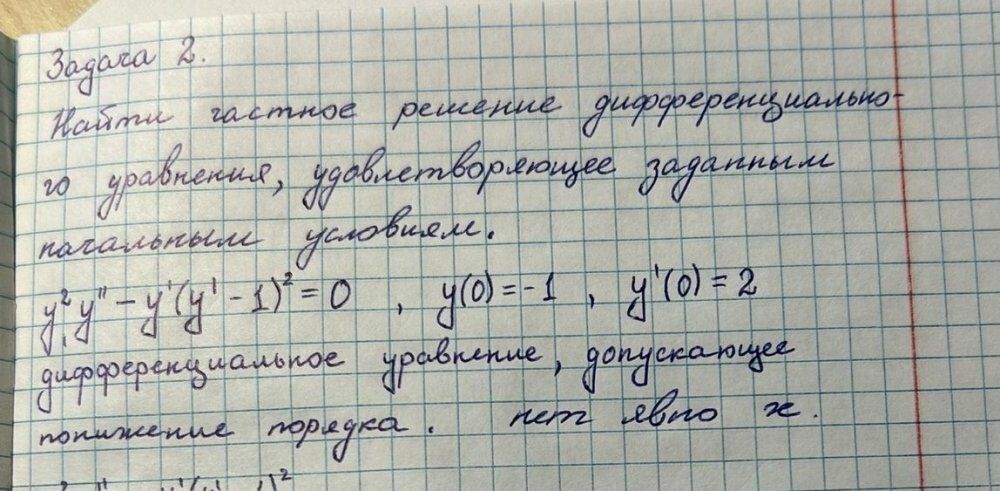 Задача 2.
Найти частное решение дифференциально-
го уравнения, удовлетворяющее заданным
начальным условиям.
y²y" - y'(y' - 1)² = 0 , y(0) = -1 , y'(0) = 2
дифференциальное уравнение, допускающее
понижение порядка. нет явно x.